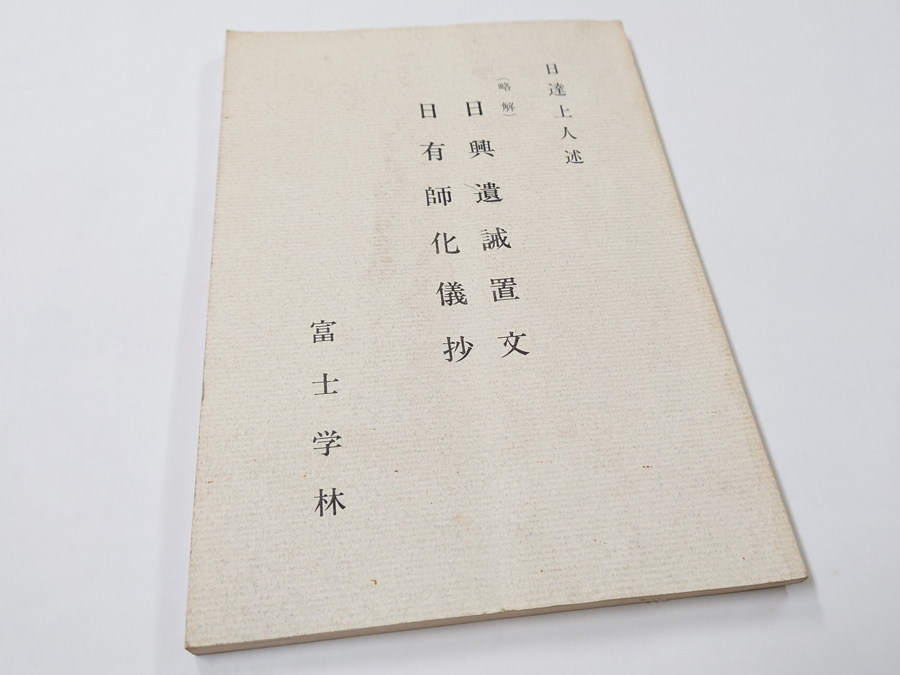 日達上人述
(略解)
日興遺誡置文
日有師化儀抄
富士学林